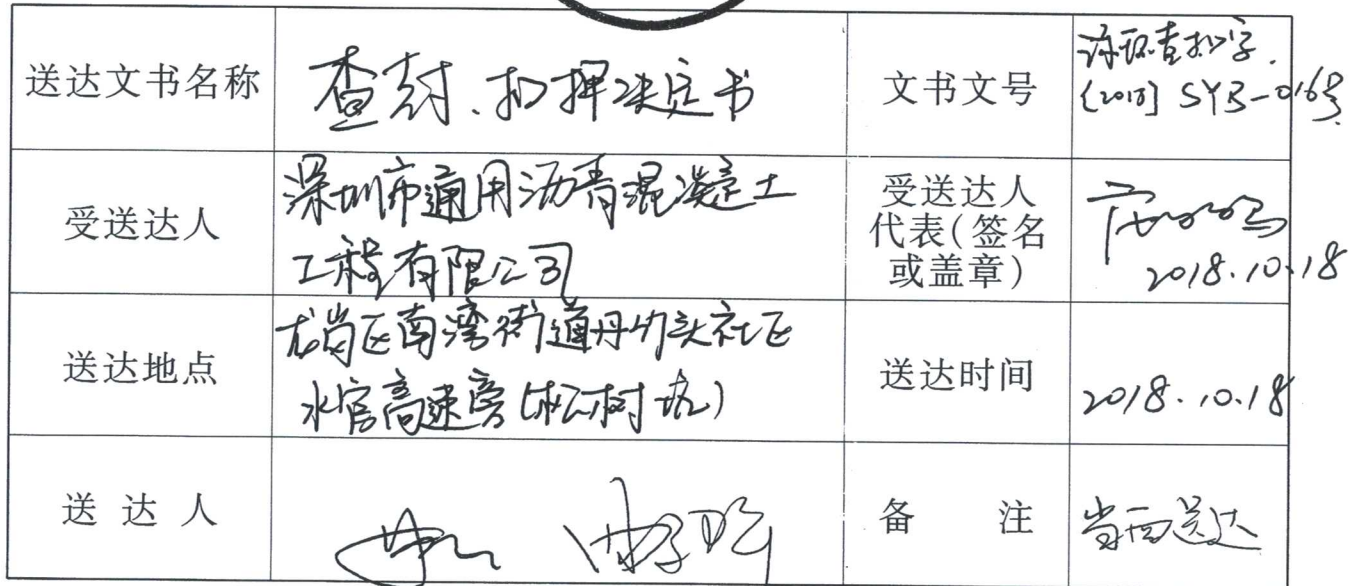 送达文书名称
查封、扣押决定书
文书文号
深环查扣字
[2018] SYB-016号
受送达人
深圳市通用沥青混凝土
工程有限公司
受送达人
代表(签名
或盖章)
2018.10.18
送达地点
龙岗区南湾街道丹竹头社区
水官高速旁(松树坑)
送达时间
2018.10.18
送 达 人
备 注
当面送达